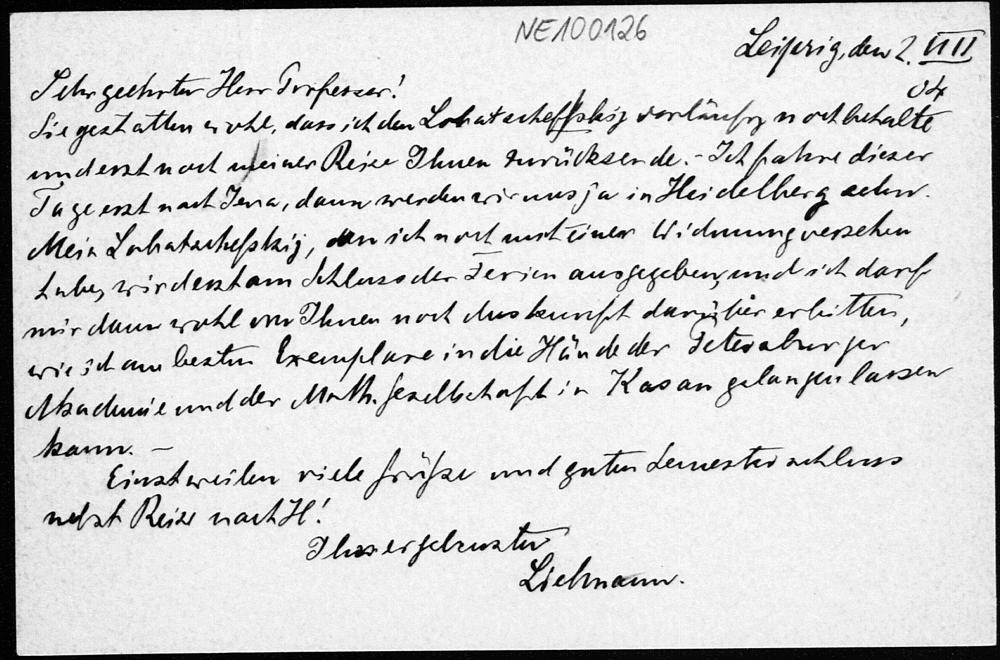 NE100126
Leipzig, den 2. VIII
04
Sehr geehrter Herr Professor!
Sie gestatten wohl, dass ich den Lobatschefskij vorläufig noch behalte
und erst nach meiner Reise Ihnen zurücksende. – Ich fahre dieser
Tage erst nach Jena, dann werden wir uns ja in Heidelberg sehn.
Mein Lobatschefskij, den ich noch mit einer Widmung versehen
habe, wird erst am Schluss der Ferien ausgegeben, und ich darf
mir dann wohl von Ihnen noch Auskunft darüber erbitten,
wie ich am besten Exemplare in die Hände der Petersburger
Akademie und der Math. Gesellschaft in Kasan gelangen lassen
kann. –
Einstweilen viele Grüße und guten Semesterschluss
nebst Reise nach H!
Ihr ergebenster
Liebmann.